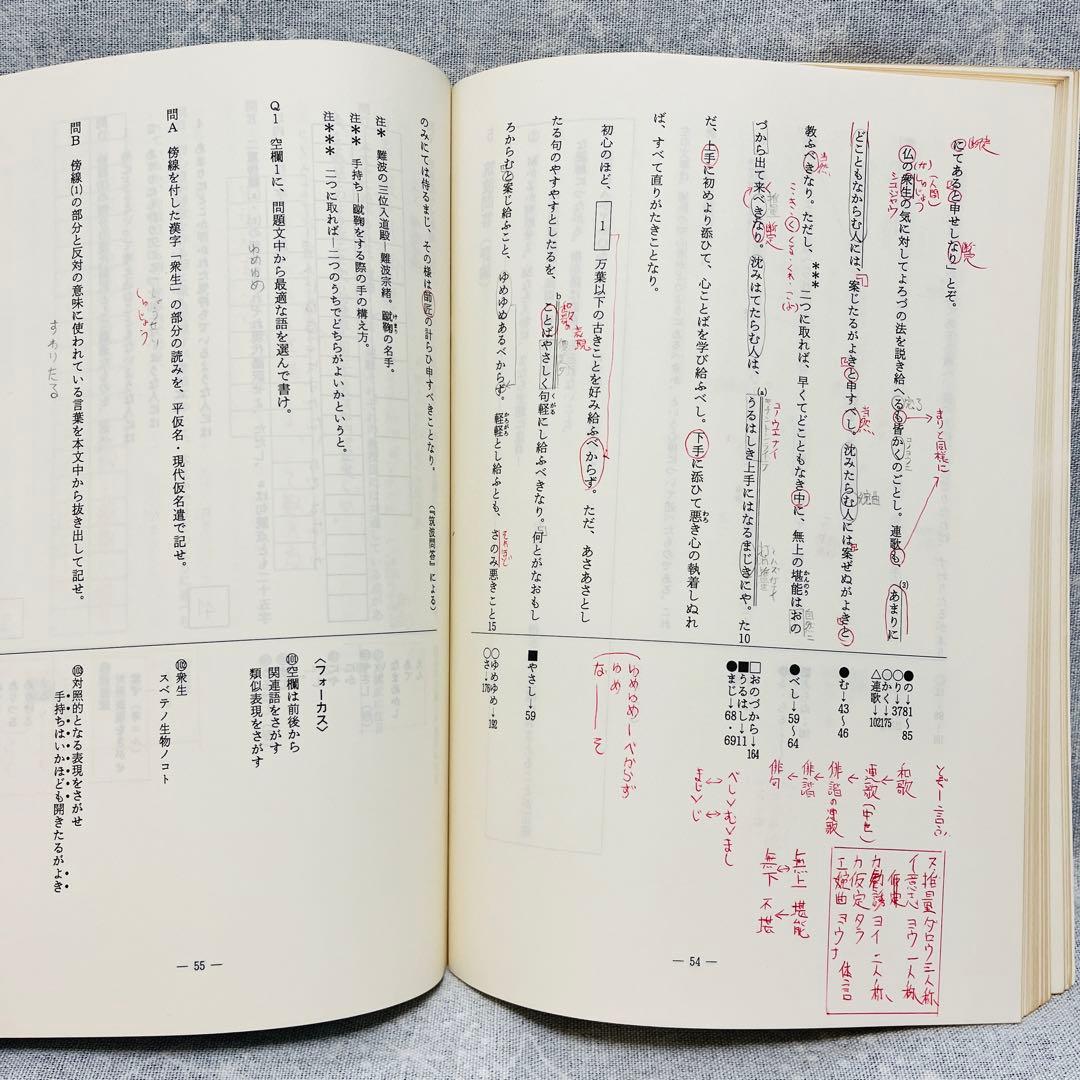 にてあると申せしなり」とぞ。
仏の衆生の気に対してよろづの法を説き給へるも皆かくのごとし。連歌も、あまりに
どこともなからむ人には、案じたるがよきと申すべし。沈みたらむ人には案ぜぬがよきと
教ふべきなり。ただし、二つに取れば、早くてどこともなき中に、無上の堪能はおの
づから出で来べきなり。沈みはてたらむ人は、うるはしき上手にはなるまじきにや。た10
だ、上手に初めより添ひて、心ことばを学び給ふべし。下手に添ひて悪き心の執着しぬれ
ば、すべて直りがたきことなり。
初心のほど、 1 万葉以下の古きことを好み給ふべからず。ただ、あさあさとし
たる句のやすやすとしたるを、ことばやさしく句軽にし給ふべきなり。何とがなおもし
ろからむと案じ給ふこと、ゆめゆめあるべからず。軽軽とし給ふとも、さのみ悪きこと15
のみにては侍るまじ、その様は師匠の計らひ申すべきことなり。
(『筑波問答』による)
注* 難波の三位入道殿―難波宗緒。蹴鞠の名手。
注** 手持ち―蹴鞠をする際の手の構え方。
注*** 二つに取れば―二つのうちでどちらがよいかというと。
Q1 空欄1に、問題文中から最適な語を選んで書け。
ゆめゆめ
問A 傍線を付した漢字「衆生」の部分の読みを、平仮名・現代仮名遣で記せ。
しゅじょう
問B 傍線(1)の部分と反対の意味に使われている言葉を本文中から抜き出して記せ。
すわりたる
●の→81〜85
○り→37
○かく→175
△連歌→102
●む→43〜46
●べし→59〜64
□おのづから→164
■うるはし→11
●まじ→68・69
■やさし→59
○ゆめゆめ→192
○さ→176
〈フォーカス〉
⑩空欄は前後から
関連語をさがす
類似表現をさがす
⑩衆生
スベテノ生物ノコト
⑩対照的となる表現をさがせ
手持ちはいかほども開きたるがよき
とぞー言ふ
和歌
連歌(中世)
俳諧の連歌
俳諧
俳句
べし>む>まし
まじ>じ
無上↔無下
堪能 不堪
ス推量ダロウ三人称
イ意志ヨウ一人称
カ勧誘ヨイ二人称
カ仮定タラ
エ婉曲ヨウナ 体言
ゆめゆめーべからず
ゆめ
なーーそ
まりと同様に
— 54 —
— 55 —